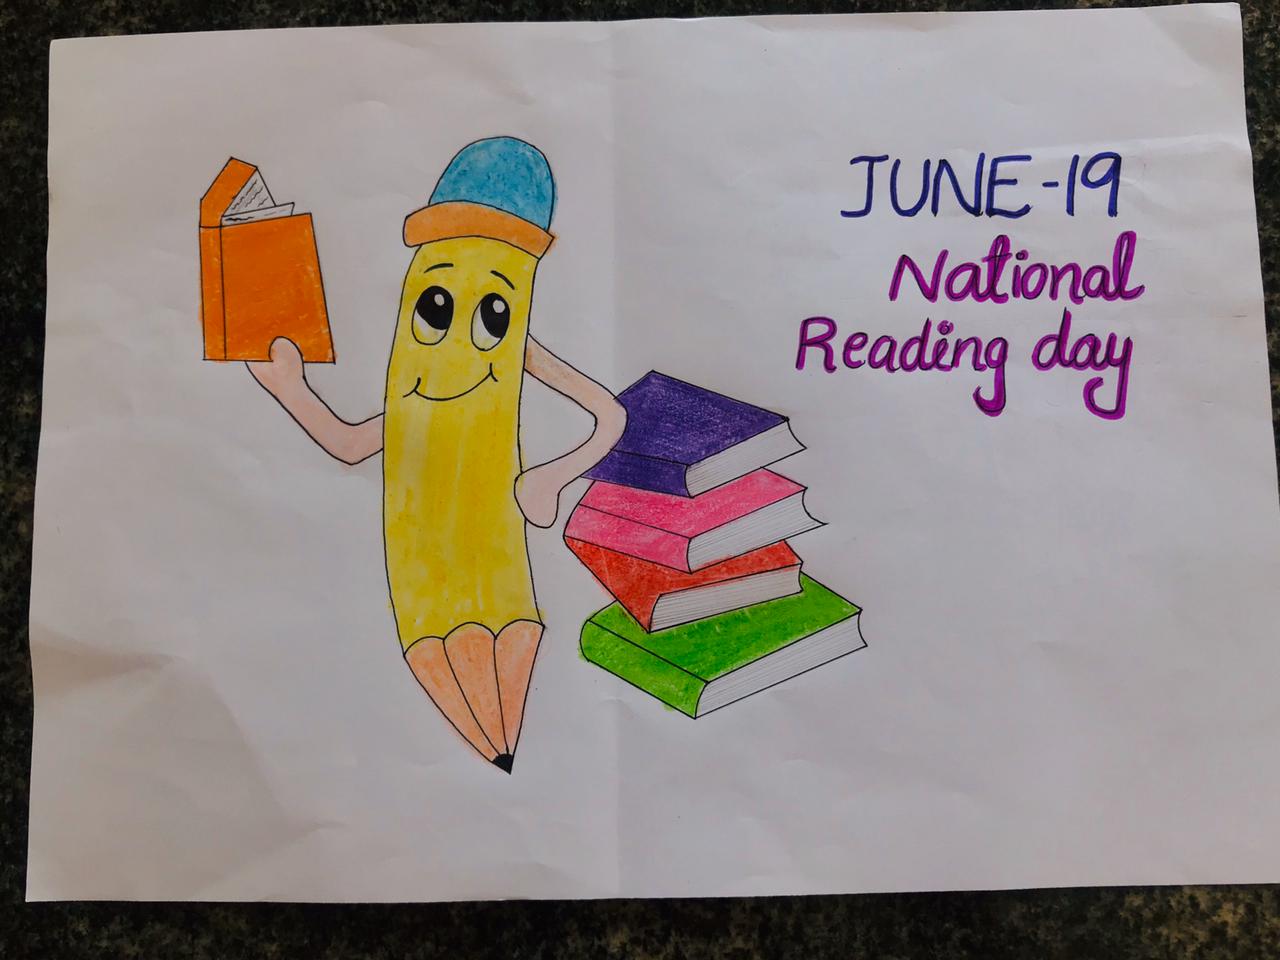 JUNE-19
National
Reading day